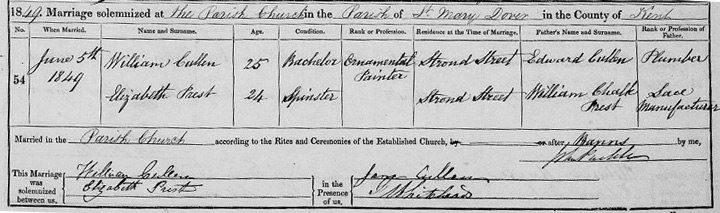 1849. Marriage solemnized at the Parish Church in the Parish of St Mary Dover in the County of Kent
No. When Married. Name and Surname. Age. Condition. Rank or Profession. Residence at the Time of Marriage. Father's Name and Surname. Rank or Profession of Father.
54 June 5th 1849 William Cullen 25 Bachelor Ornamental Painter Strond Street Edward Cullen Plumber
Elizabeth Prest 24 Spinster Strond Street William Chalk Prest Lace Manufacturer
Married in the Parish Church according to the Rites and Ceremonies of the Established Church, by or after Banns by me,
This Marriage was solemnized between us, William Cullen Elizabeth Prest in the Presence of us. Cullen Whitehead